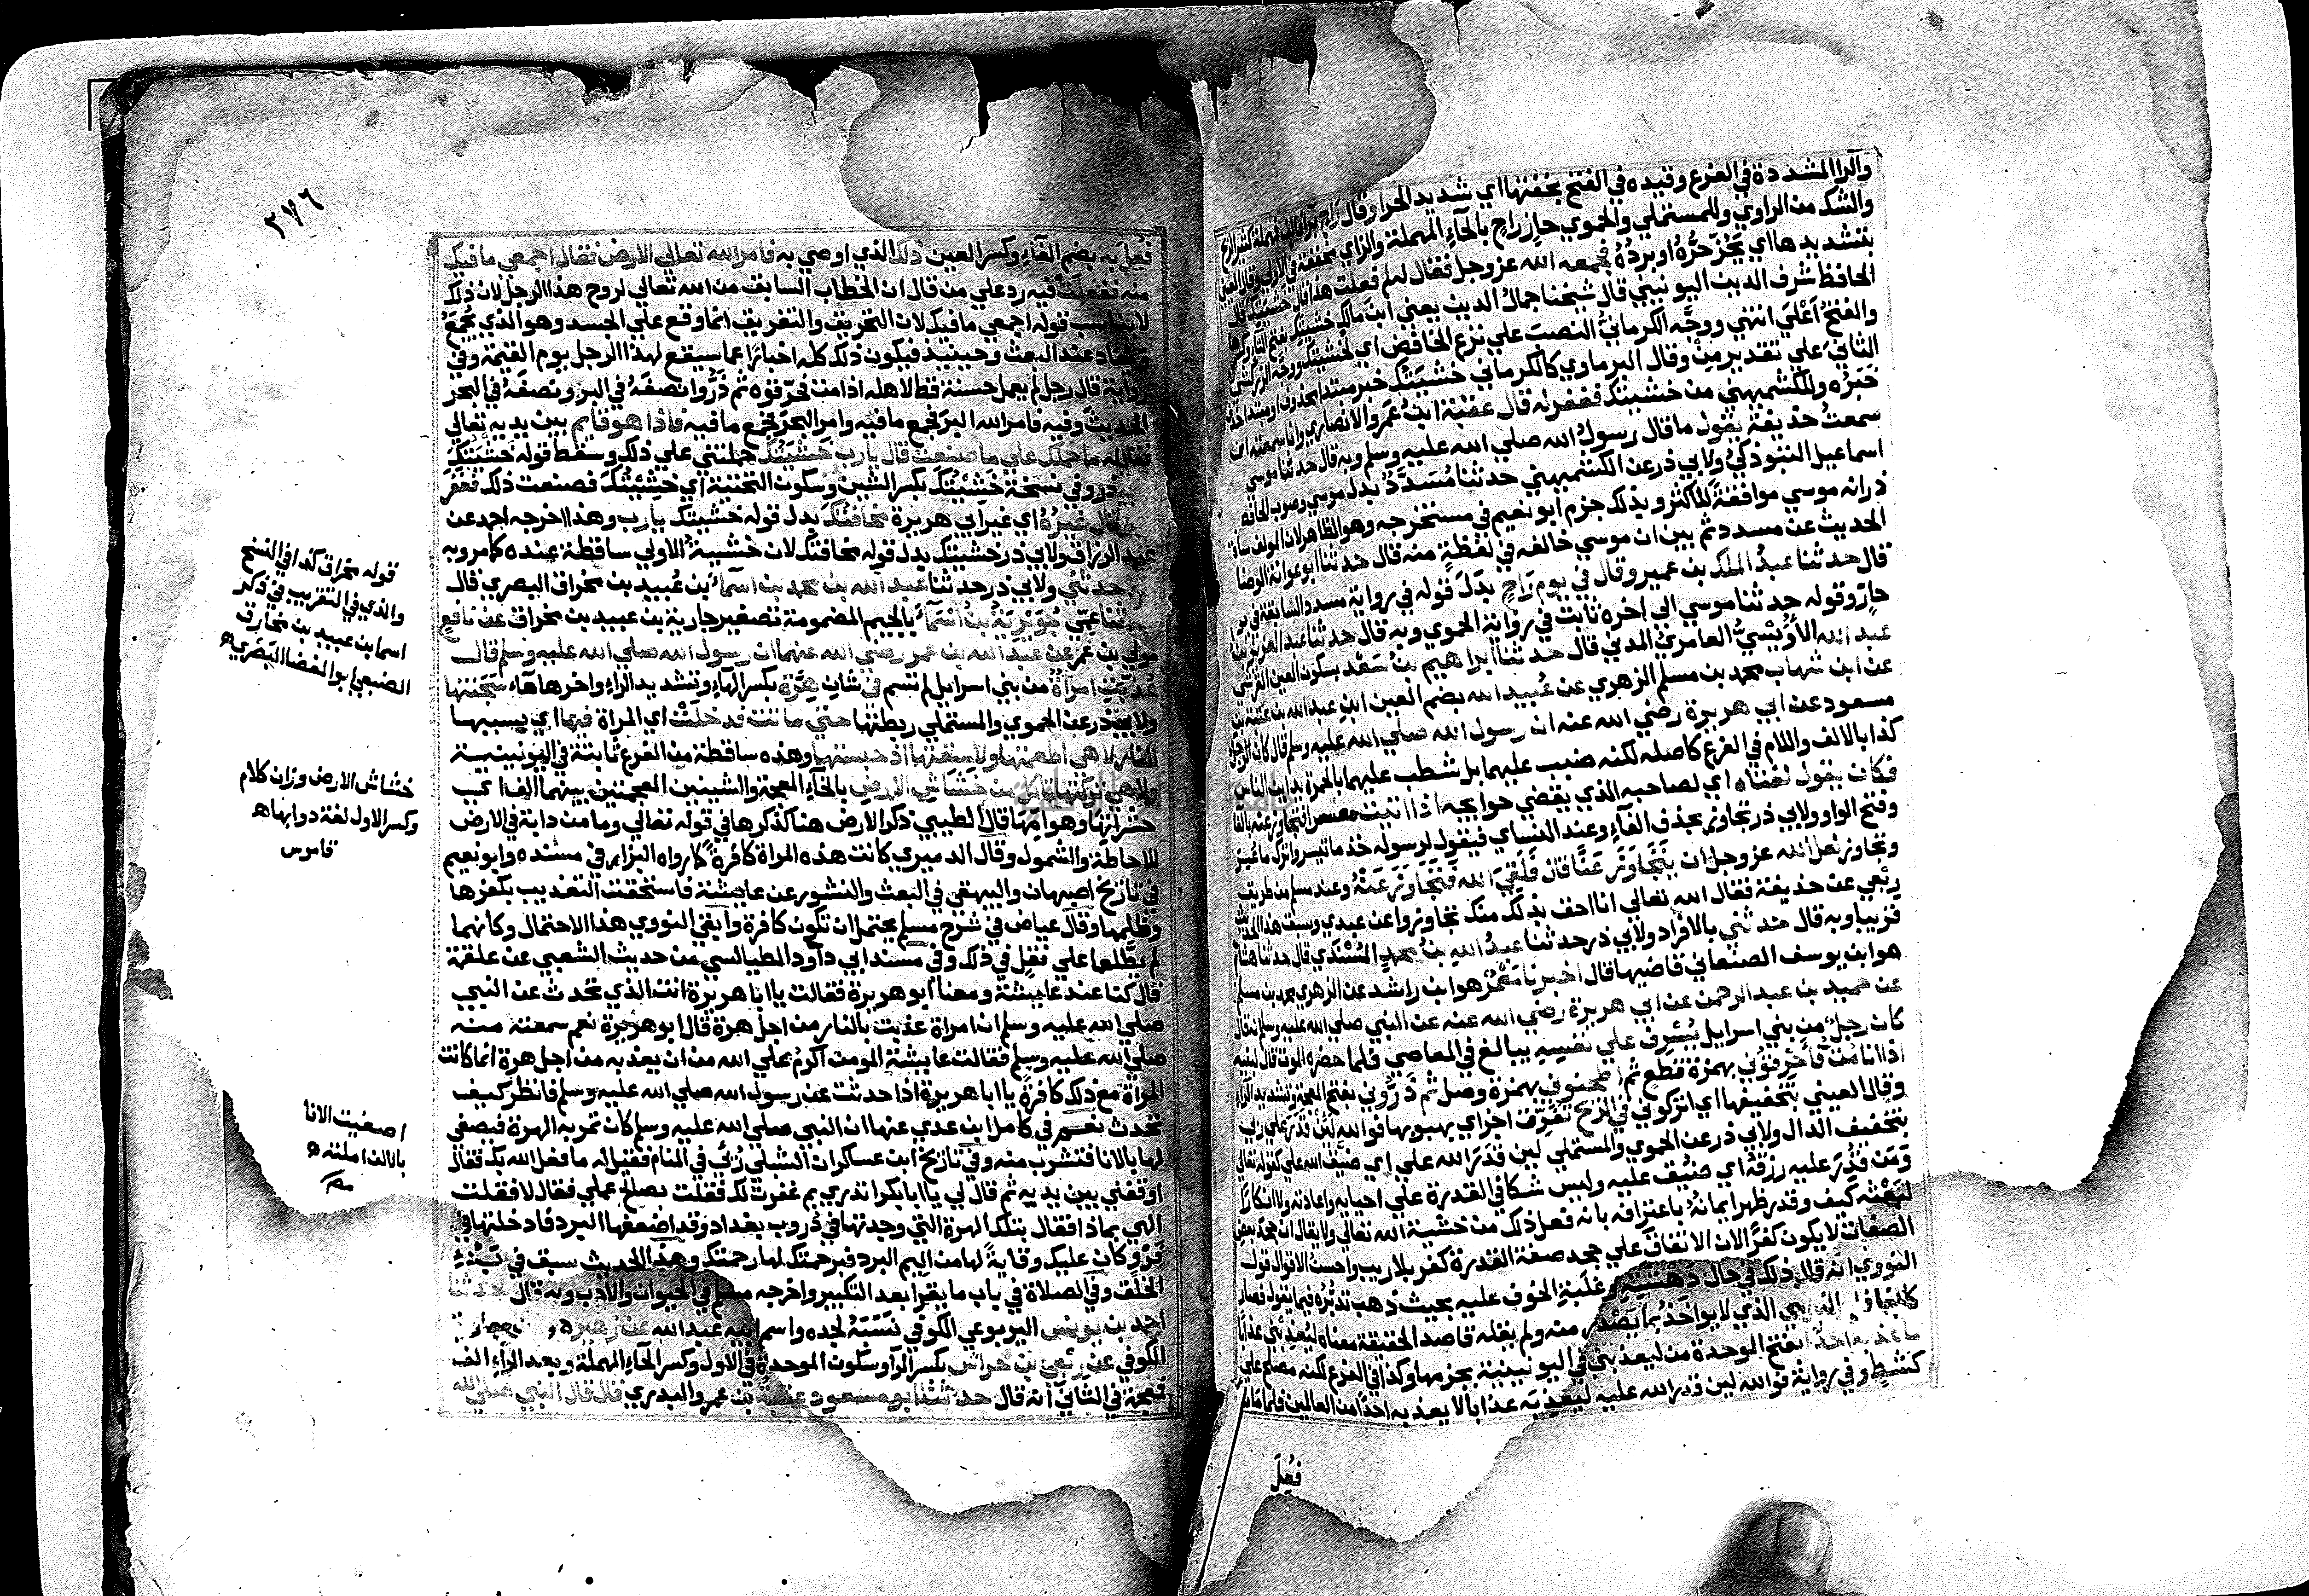 والراالمشددة في الفرع وقيده في الفتح بخفتها اي شديد الحر اوقال راح
والشك من الراوي وللمستملي والحموي حاز راح بالحاء المهملة والزاي مخففة في الاولي
بتشديدها اي يحز حره او برده فجمعه الله عز وجل فقال لم فعلت هذا قال خشيتك قال
الحافظ شرف الدين اليونيني قال شيخنا جمال الدين يعني ابن مالك خشيتك بفتح التاء وكسرها
والفتح اعلي انتهي ووجه الكرماني النصب علي نزع الخافض اي لخشيتك ووجه الزركشي
الثاني علي تقدير من وقال البرماوي كالكرماني خشيتك خبر مبتدا محذوف او مبتدا حذف
خبره وللكشميهني من خشيتك فغفر له قال عقبة ابن عمرو الانصاري وانا سمعته
سمعت حذيفة يقول ما قال رسول الله صلي الله عليه وسلم وبه قال حدثنا موسي
اسماعيل التبوذكي ولابي ذر عن الكشميهني حدثنا مسدد بدل موسي وصوب الحافظ
ذر انه موسي موافقة للاكثر وبذلك جزم ابو نعيم في مستخرجه وهو الظاهر لان المولف ساق
الحديث عن مسدد ثم بين ان موسي خالفه في لفظة منه قال حدثنا ابو عوانة الوضاح
قال حدثنا عبد الملك بن عمير وقال في يوم راح بدل قوله في رواية مسدد السابقة في يوم
حار وقوله حدثنا موسي الي اخره ثابت في رواية الحموي وبه قال حدثنا عبد العزيز بن
عبد الله الاويسي العامري المدني قال حدثنا ابراهيم بن سعد بسكون العين القرشي
عن ابن شهاب محمد بن مسلم الزهري عن عبيد الله بضم العين ابن عبد الله بن عتبة بن
مسعود عن ابي هريرة رضي الله عنه ان رسول الله صلي الله عليه وسلم قال كان الرجل
كذا بالالف واللام في الفرع كاصله لكنه ضبب عليهما بل شطب عليهما بالحمرة يداين الناس
فكان يقول لفتاه اي لصاحبه الذي يقضي حوايجه اذا اتيت معسرا فتجاوز عنه بالفا
وفتح الواو ولابي ذر تجاوز بحذف الفاء وعند النساي فيقول لرسوله خذ ما تيسر واترك ما عسر
وتجاوز لعل الله عز وجل ان يتجاوز عنا قال فلقي الله فتجاوز عنه وعند مسلم من طريق
ربعي عن حذيفة فقال الله تعالي انا احق بذلك منك تجاوزوا عن عبدي وسبق هذا الحديث
قريبا وبه قال حدثني بالافراد ولابي ذر حدثنا عبد الله بن محمد المسندي قال حدثنا هشام
هو ابن يوسف الصنعاني قاضيها قال اخبرنا معمر هو ابن راشد عن الزهري محمد بن مسلم
عن حميد بن عبد الرحمن عن ابي هريرة رضي الله عنه عن النبي صلي الله عليه وسلم انه قال
كان رجل من بني اسرايل يسرف علي نفسه يبالغ في المعاصي فلما حضره الموت قال لبنيه
اذا انا مت فاحرقوني بهمزة قطع ثم اطحنوني بهمزة وصل ثم ذروني بفتح المعجمة وتشديد الراء
وقال العيني بتخفيفها اي اتركوني في الريح تفرق اجزاي بهبوبها فوالله لئن قدر علي ربي
بتخفيف الدال ولابي ذر عن الحموي والمستملي لين قدر الله علي اي ضيق الله علي كقوله تعالي
ومن قدر عليه رزقه اي ضيق عليه وليس شكا في القدرة علي احيايه واعادته ولا انكارا
لبعثه كيف وقد ظهر ايمانه باعترافه بانه فعل ذلك من خشية الله تعالي ولا يقال ان جحد بعض
الصفات لا يكون كفرا لان الاتفاق علي جحد صفة القدرة كفر بلا ريب واحسن الاقوال قول
النووي انه قال ذلك في حال دهشته وغلبة الخوف عليه بحيث ذهب تدبره فيما يقول فصار
الذي لا يواخذ بما يصدر منه ولم يقله قاصدا لحقيقة معناه ليعذبني عذابا
بفتح الموحدة من ليعذبني في اليونينية بجزمها وكذا في الفرع لكنه مصلح علي
كشط وفي رواية فوالله لين قدر الله عليه ليعذبنه عذابا لا يعذبه احدا من العالمين فلما مات
فعل
٢٧٦
فعل به بضم الفاء وكسر العين ذلك الذي اوصي به فامر الله تعالي الارض فقال اجمعي ما فيك
منه ففعلت فيه رد علي من قال ان الخطاب السابق من الله تعالي لروح هذا الرجل لان ذلك
لا يناسب قوله اجمعي ما فيك لان التحريق والتفريق انما وقع علي الجسد وهو الذي يجمع
ويعاد عند البعث وحينيذ فيكون ذلك كله اخبارا عما سيقع لهذا الرجل يوم القيمة وفي
رواية قال رجل لم يعمل حسنة قط لاهله اذا مت فحرقوه ثم ذروا نصفه في البر ونصفه في البحر
الحديث وفيه فامر الله البر فجمع ما فيه وامر البحر فجمع ما فيه فاذا هو قايم بين يديه تعالي
فقال له ما حملك علي ما صنعت قال يا رب خشيتك حملتني علي ذلك وسقط قوله خشيتك
ذر وفي نسخة خشيتك بكسر الشين وسكون التحتية اي خشيتك فصنعت ذلك فغفر
وقال غيره اي غير ابي هريرة مخافتك بدل قوله خشيتك يا رب وهذا اخرجه احمد عن
عبد الرزاق ولابي ذر خشيتك بدل قوله مخافتك لان خشية الاولي ساقطة عنده كما مر وبه
حدثني ولابي ذر حدثنا عبد الله بن محمد بن اسماء بن عبيد بن مخراق البصري قال
حدثنا عمي جويرية بن اسماء بالجيم المضمومة تصغير جارية بن عبيد بن مخراق عن نافع
مولي بن عمر عن عبد الله بن عمر رضي الله عنهما ان رسول الله صلي الله عليه وسلم قال
عذبت امراة من بني اسرايل لم تسم في شان هرة بكسر الهاء وتشديد الراء واخرها هاء سجنتها
ولابي ذر عن الحموي والمستملي ربطتها حتي ماتت فدخلت اي المراة فيها اي بسببها
النار لا هي اطعمتها ولا سقتها اذ حبستها وهذه ساقطة من الفرع ثابتة في اليونينية
ولا هي تركتها تاكل من خشاش الارض بالخاء المعجمة والشينين المعجمتين بينهما الف اي
حشراتها وهوامها قال الطيبي ذكر الارض هنا كذكرها في قوله تعالي وما من دابة في الارض
للاحاطة والشمول وقال الدميري كانت هذه المراة كافرة كما رواه البزار في مسنده وابو نعيم
في تاريخ اصبهان والبيهقي في البعث والنشور عن عايشة فاستحقت التعذيب بكفرها
وظلمها وقال عياض في شرح مسلم يحتمل ان تكون كافرة وابقي النووي هذا الاحتمال وكانهما
لم يطلعا علي نقل في ذلك وفي مسند ابي داود الطيالسي من حديث الشعبي عن علقمة
قال كنا عند عايشة ومعنا ابو هريرة فقالت يا ابا هريرة انت الذي تحدث عن النبي
صلي الله عليه وسلم ان امراة عذبت بالنار من اجل هرة قال ابو هريرة نعم سمعته منه
صلي الله عليه وسلم فقالت عايشة المومن اكرم علي الله من ان يعذبه من اجل هرة انما كانت
المراة مع ذلك كافرة يا ابا هريرة اذا حدثت عن رسول الله صلي الله عليه وسلم فانظر كيف
تحدث نعم في كامل ابن عدي عنها ان النبي صلي الله عليه وسلم كان تمر به الهرة فيصغي
لها بالانا فتشرب منه وفي تاريخ ابن عساكر ان الشبلي رئي في المنام فقيل له ما فعل الله بك فقال
اوقفني بين يديه ثم قال لي يا ابا بكر اتدري بم غفرت لك فقلت بصالح عملي فقال لا فقلت
الهي بماذا فقال بتلك الهرة التي وجدتها في دروب بغداد وقد اضعفها البرد فادخلتها في
فرو كان عليك وقاية لها من اليم البرد فبرحمتك لها رحمتك وهذا الحديث سبق في بدء
الخلق وفي الصلاة في باب ما يقرا بعد التكبير واخرجه مسلم في الحيوان والادب وبه قال حدثنا
احمد بن يونس اليربوعي الكوفي نسبة لجده واسم ابيه عبد الله عن زهير
الكوفي عن ربعي بن حراش بكسر الرا وسكون الموحدة في الاول وكسر الحاء المهملة وبعد الراء الف
فمعجمة في الثاني انه قال حدثنا ابو مسعود عقبة بن عمرو البدري قال قال النبي صلي الله
قوله مخراق كذا في النسخ
والذي في التقريب في ذكر
اسما بن عبيد بن مخارق
الضبعي ابو الفضل البصري ه
خشاش الارض وزان كلام
وكسر الاول لغة دوابها اه
قاموس
اصغيت الانا
بالالف املته ه